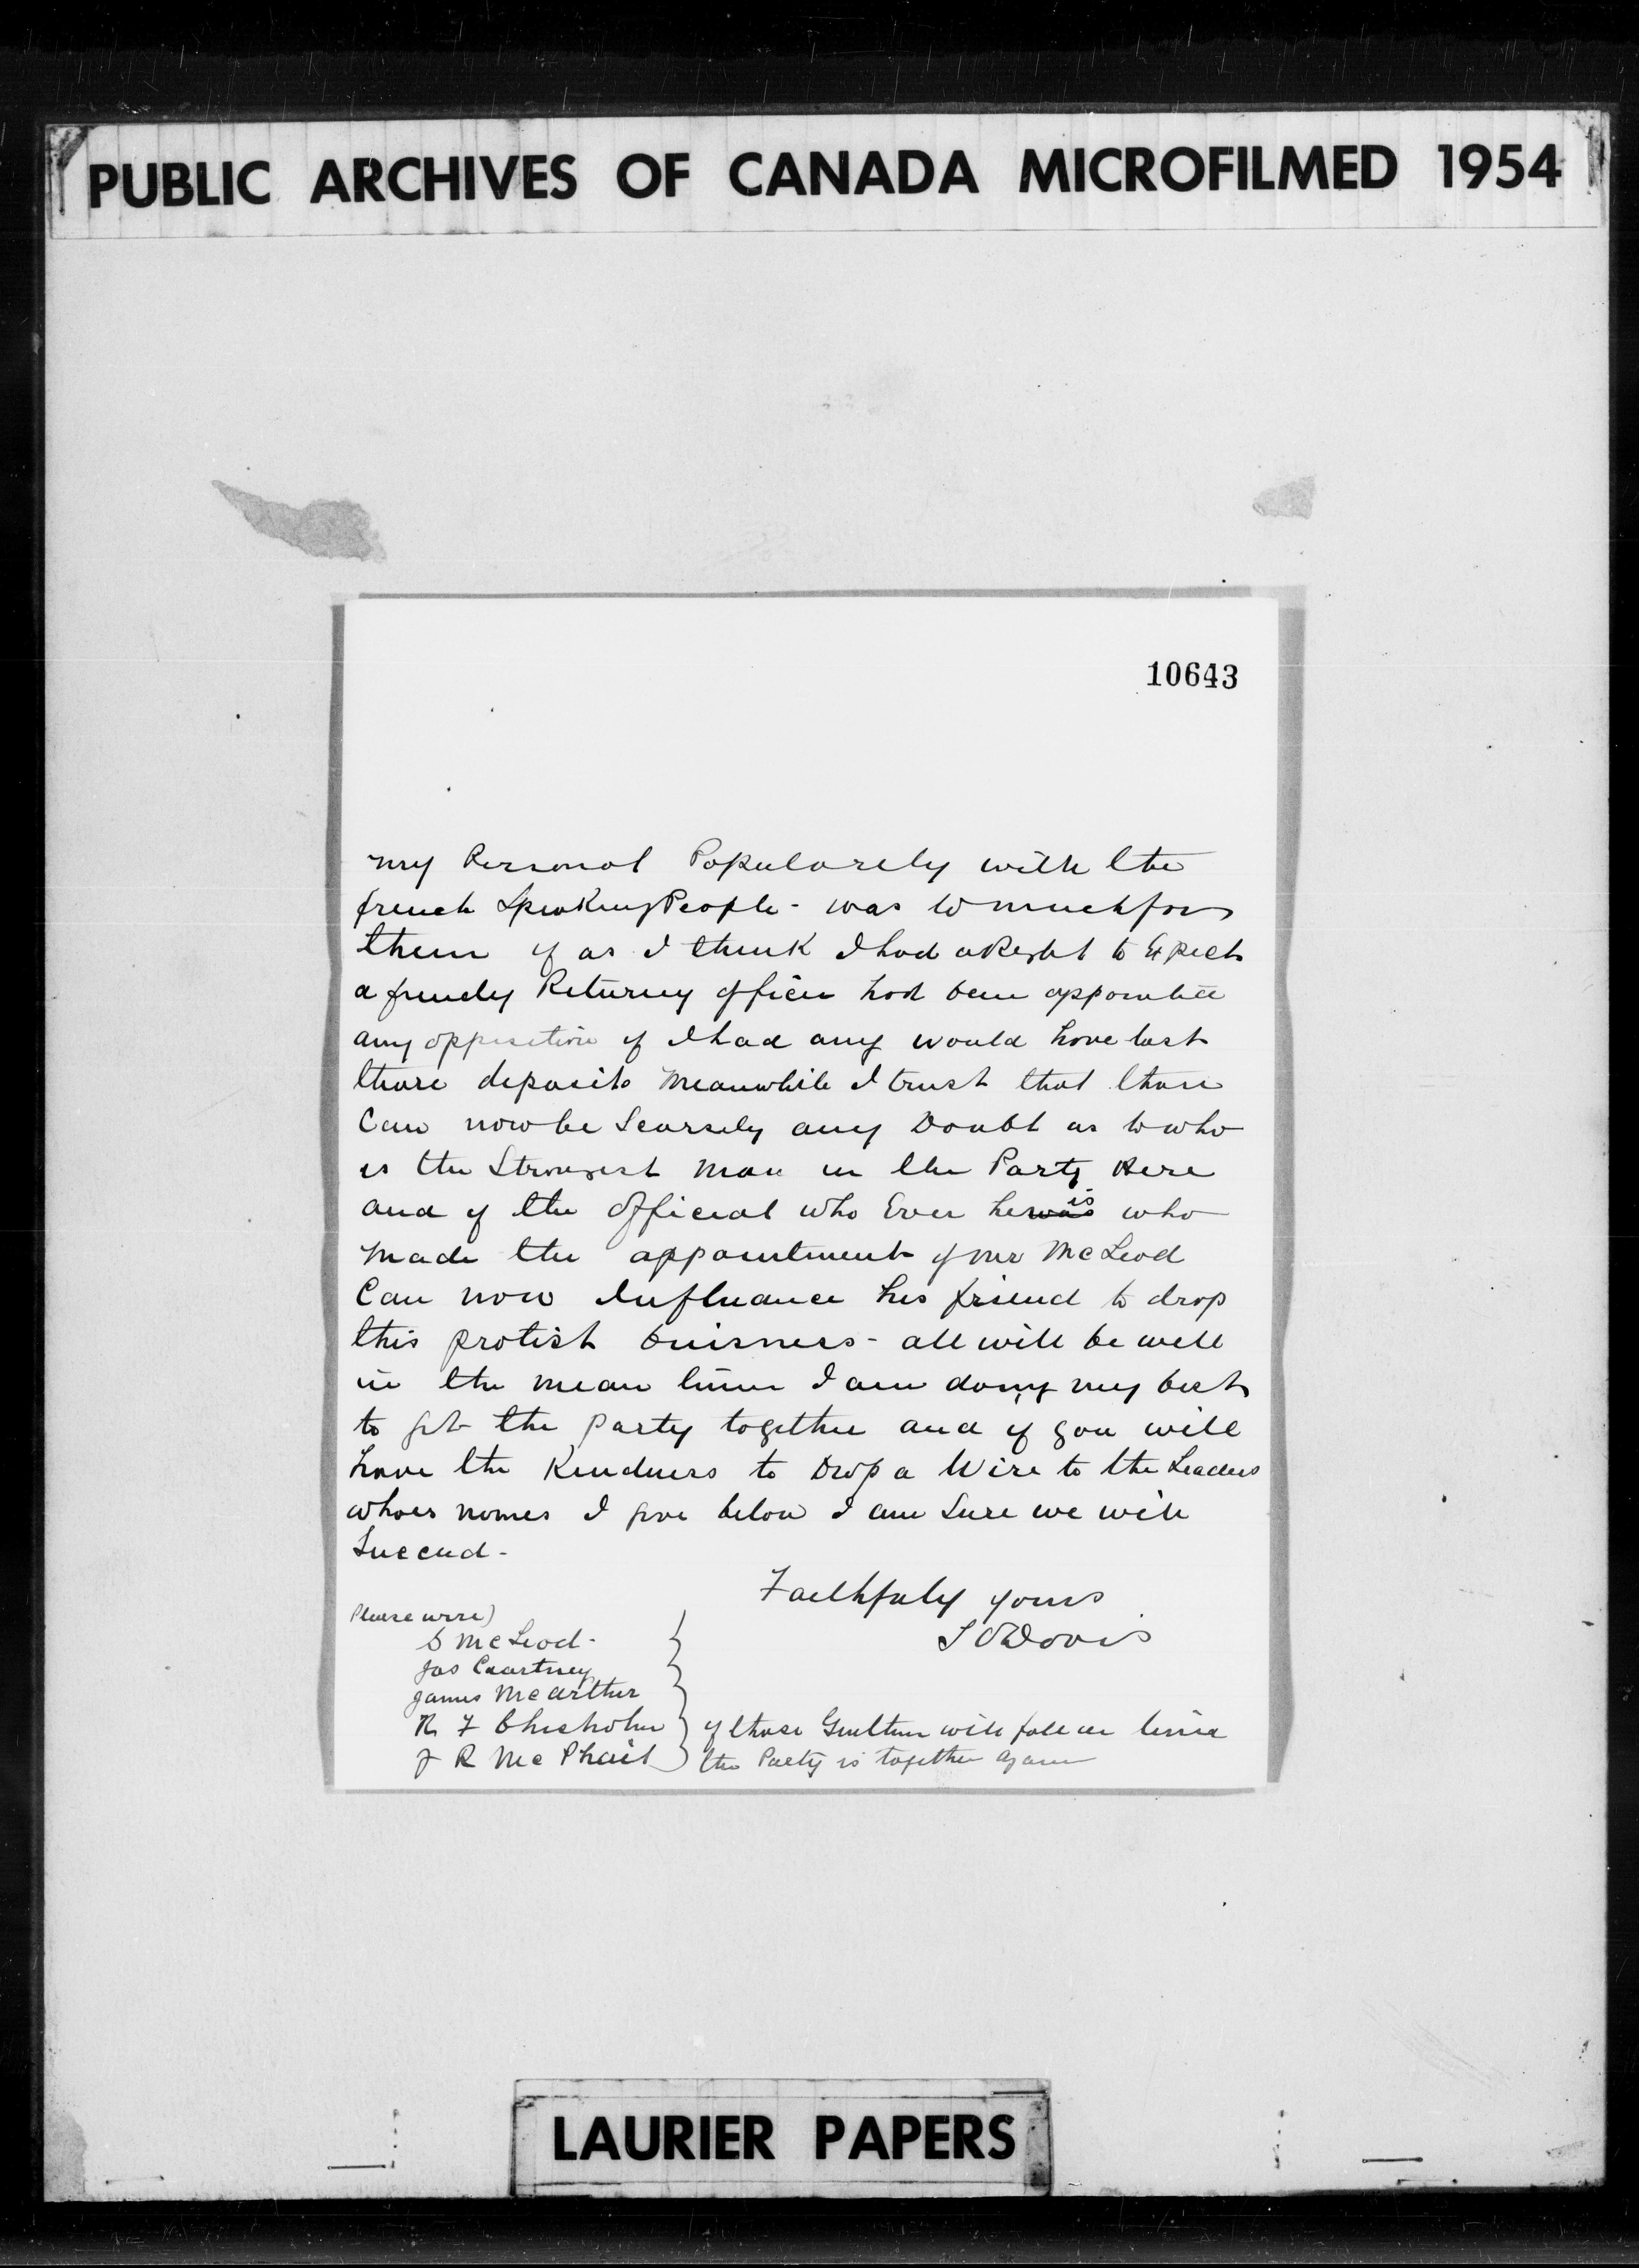 PUBLIC ARCHIVES OF CANADA MICROFILMED 1954
10643
my Personal Popularity with the
french Speaking People - was to much for
them if as I think I had a Right to Expect
a frendly Returning officer had been appointed
any opposition if I had any would have lost
thare deposits Meanwhile I trust that thare
Can now be Scarsely any Doubt as to who
is the Strongest Man in the Party Here
and if the Official who Ever he was is who
Made the appointment of Mr McLeod
Can now Influance his friend to drop
this protist buisness - all will be well
in the mean time I am doing my best
to get the party together and if you will
have the Kindness to Drop a Wire to the Leaders
whoes names I give below I am Sure we will
Succeed -
Faithfuly yours
T O Davis
Please wire)
McLeod -
Jas Courtney
James McArthur
R F Chisholm } if those Gentlemen will fall in line
J R McPhail } the Party is together again
LAURIER PAPERS